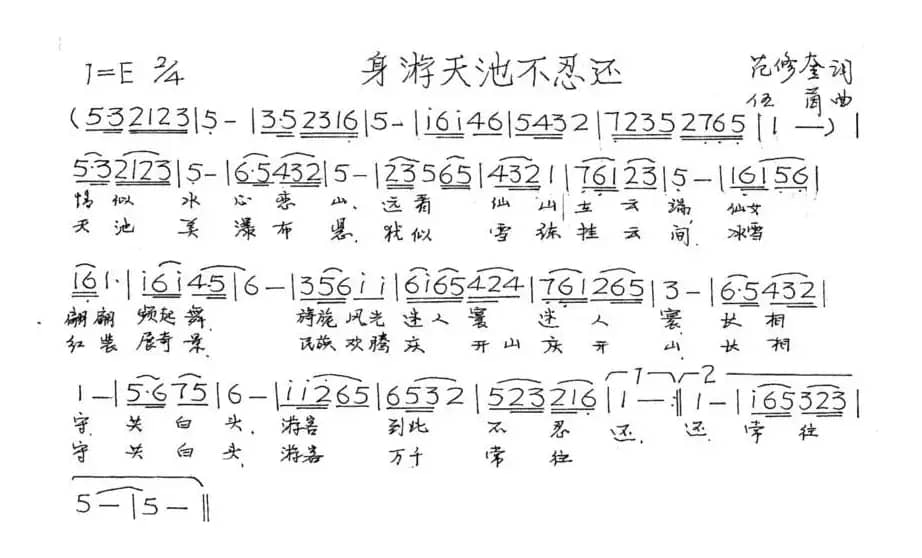 1=E 2/4 身游天池不忍还 范修奎词
伍 曲
(5·32123|5—|3·52316|5—|i6i46|5432|72352765|1—)|
5·32123|5—|6·5432|5—|23565|4321|76123|5—|16156|
情似水心恋山,远看仙山立云端,仙女
天池美瀑布悬,犹似雪练挂云间,冰雪
161·|i6i4·5|6—|356ii|6i65424|761265|3—|6·5432|
翩翩频起舞 诗旎风光迷人寰迷人寰长相
红装展奇景 民族欢腾庆开山庆开山长相
1—|5·675|6—|ii265|6532|523216|1—:|1—|i65323|
守关白头,游客到此不忍还,还常往
守关白头,游客万千常往
5—|5—‖
1 2